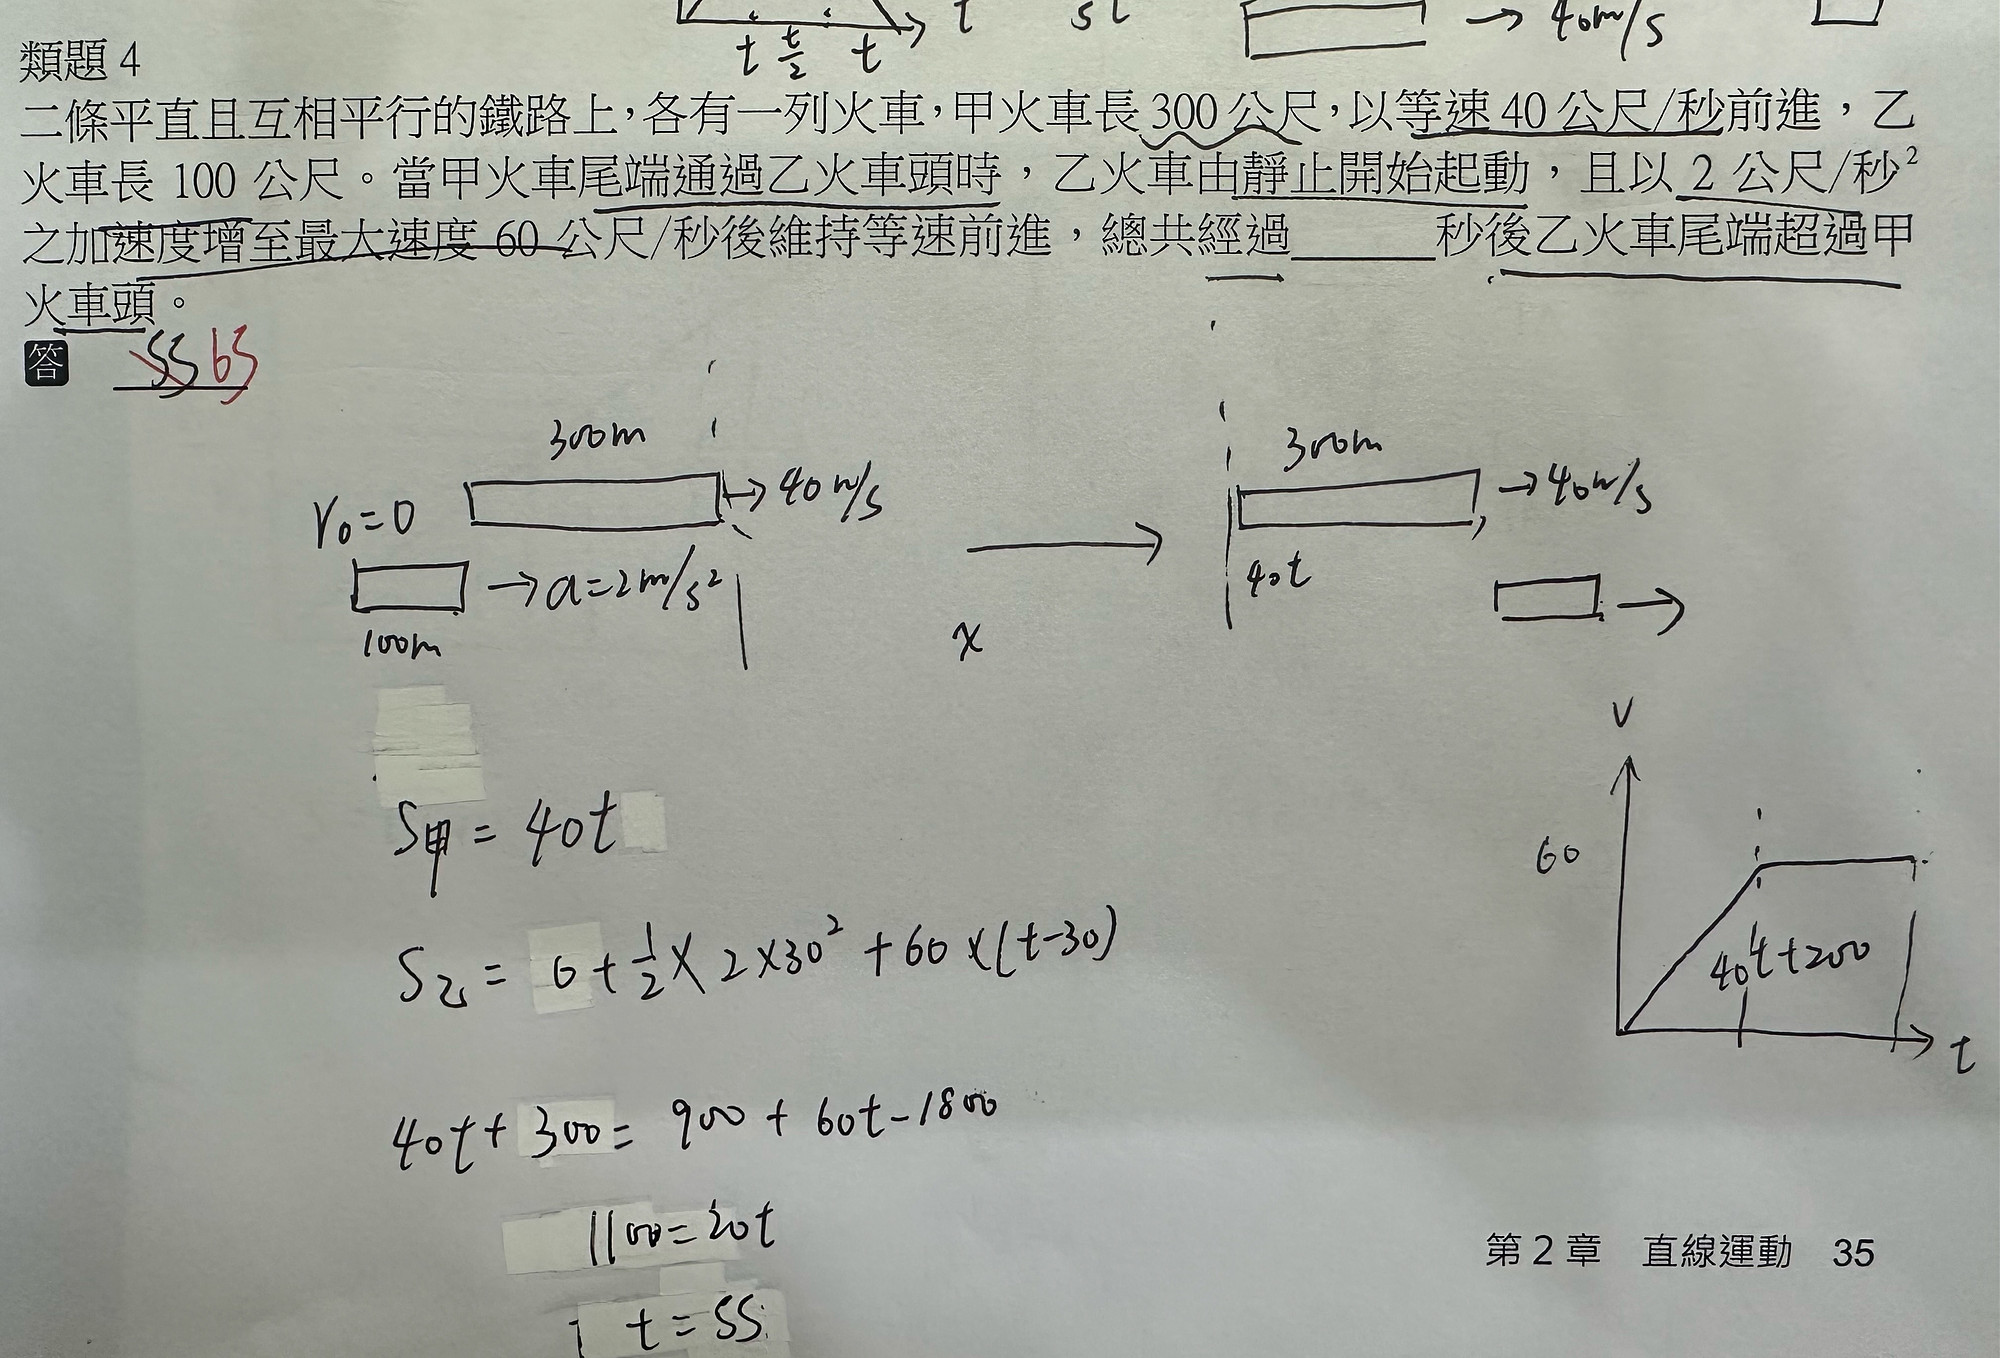 t t/2 t t st → 40m/s
類題 4
二條平直且互相平行的鐵路上，各有一列火車，甲火車長 300 公尺，以等速 40 公尺/秒前進，乙
火車長 100 公尺。當甲火車尾端通過乙火車頭時，乙火車由靜止開始起動，且以 2 公尺/秒²
之加速度增至最大速度 60 公尺/秒後維持等速前進，總共經過______秒後乙火車尾端超過甲
火車頭。
答 55 65
300m
→40m/s
V₀=0
→a=2m/s²
100m
x
300m
→40m/s
40t
V
60
40t+200
t
S甲 = 40t
S乙 = 0+½×2×30²+60×(t-30)
40t+300=900+60t-1800
1100=20t
t=55
第 2 章 直線運動 35